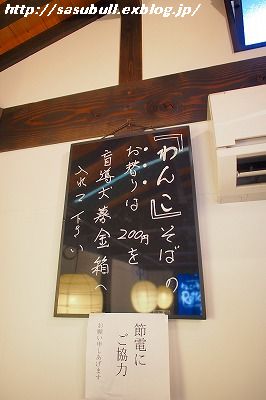 http://sasubull.exblog.jp/
『わんこ』そばの
お替りは200円を
盲導犬募金箱へ
入れて下さい
節電に
ご協力
お願い申しあげます